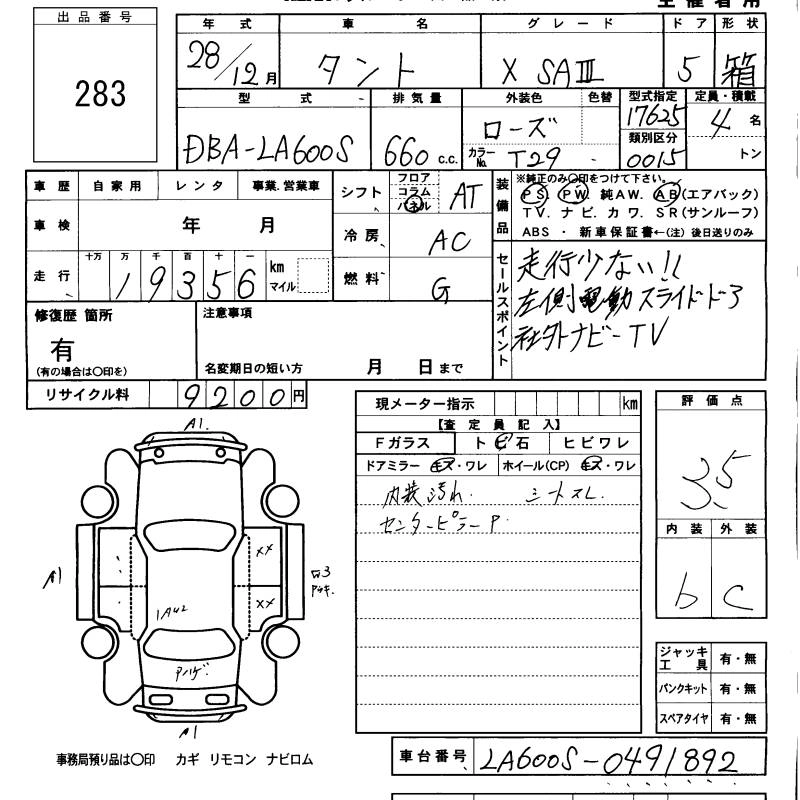 主催者用
出品番号
283
年式 車名 グレード ドア 形状
28/12月 タント X SAIII 5 箱
型式 排気量 外装色 色替 型式指定 定員・積載
DBA-LA600S 660 c.c. ローズ 17625 4名
カラーNo. T29 類別区分 0015 トン
車歴 自家用 レンタ 事業.営業車
シフト フロア コラム パネル AT
車検 年 月
冷房 AC
走行 十万 万 千 百 十 一
19356 km マイル
燃料 G
装備品 ※純正のみ○印をつけて下さい。
PS PW 純AW. AB(エアバック)
TV. ナビ. カワ. SR(サンルーフ)
ABS ・ 新車保証書←(注) 後日送りのみ
セールスポイント
走行少ない!!
左側電動スライドドア
社外ナビーTV
修復歴 箇所 注意事項
有
(有の場合は○印を) 名変期日の短い方 月 日まで
リサイクル料 9200円
現メーター指示 km
【査定員記入】
Fガラス トビ石 ヒビワレ
ドアミラー キズ・ワレ ホイール(CP) キズ・ワレ
内装汚れ シートスレ
センターピラーP
評価点
3.5
内装 外装
b C
ジャッキ 工具 有・無
パンクキット 有・無
スペアタイヤ 有・無
A1.
A1
XX
XX
A1
事務局預り品は○印 カギ リモコン ナビロム
車台番号 LA600S-0491892